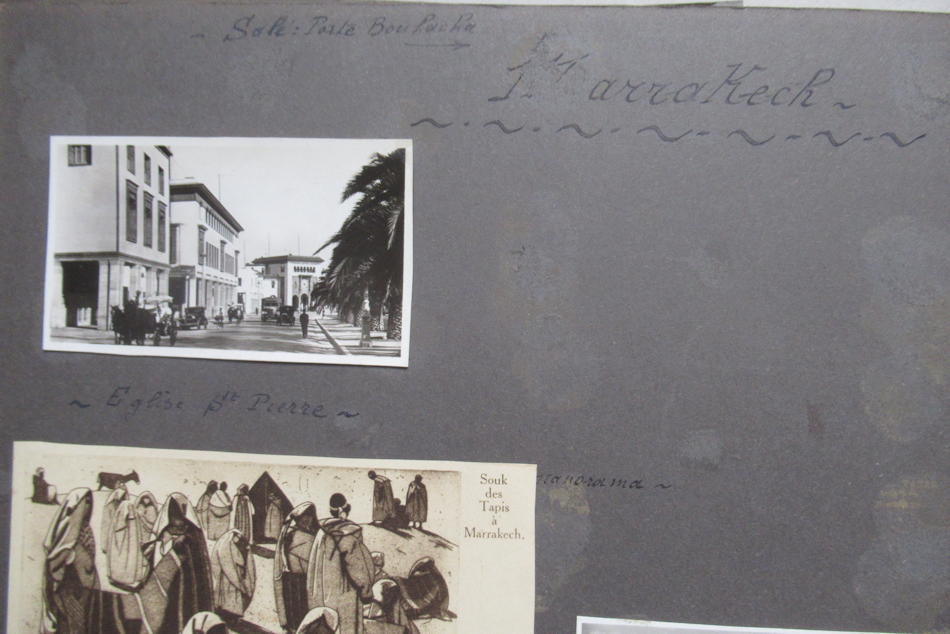 ~ Salé: Porte Bou Hacha
Marrakech ~
~ Eglise St Pierre ~
Panorama ~
Souk
des
Tapis
à
Marrakech.